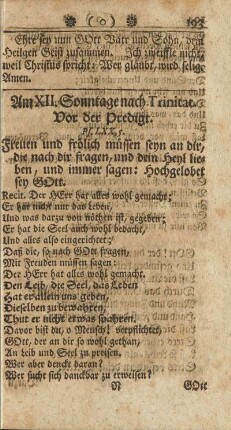 ( o ) 193
Ehre sey nun GOtt Vatr und Sohn, dem
Heilgen Geist zusammen. Ich zweiffle nicht,
weil Christus spricht: Wer glaubt, wird selig.
Amen.
Am XII. Sonntage nach Trinitat.
Vor der Predigt.
Freuen und frölich müssen seyn an dir,
die nach dir fragen, und dein Heyl lie-
ben, und immer sagen: Hochgelobet
sey GOtt.
Recit. Der HErr hat alles wohl gemacht,
Er hat nicht nur das Leben,
Und was darzu von nöthen ist, gegeben;
Er hat die Seel auch wohl bedacht,
Und alles also eingerichtet;
Daß die, so nach GOtt fragen,
Mit Freuden müssen sagen:
Der HErr hat alles wohl gemacht.
Den Leib, die Seel, das Leben
Hat er allein uns geben,
Dieselben zu bewahren,
Thut er nicht etwas spahren.
Davor bist du, o Mensch! verpflichtet,
GOtt, der an dir so wohl gethan,
An Leib und Seel zu preisen.
Wer aber dencket daran?
Wer sucht sich danckbar zu erweisen?
N GOtt